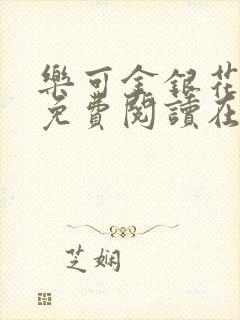 樂可金銀花
免費閱讀在
芝嫻